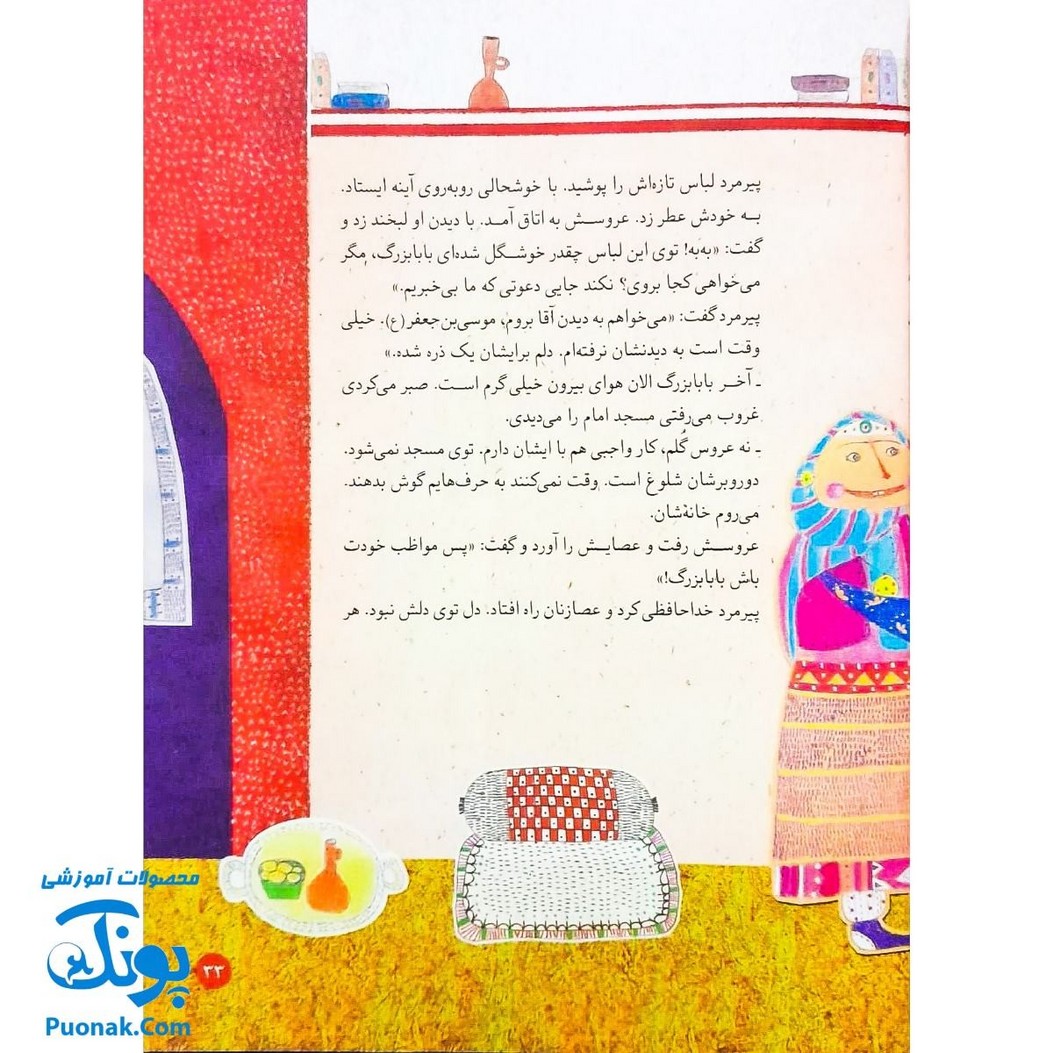 پیرمرد لباس تازه‌اش را پوشید. با خوشحالی روبه‌روی آینه ایستاد.
به خودش عطر زد. عروسش به اتاق آمد. با دیدن او لبخند زد و
گفت: «به‌به! توی این لباس چقدر خوشگل شده‌ای بابابزرگ، مگر
می‌خواهی کجا بروی؟ نکند جایی دعوتی که ما بی‌خبریم.»
پیرمرد گفت: «می‌خواهم به دیدن آقا بروم، موسی‌بن‌جعفر(ع). خیلی
وقت است به دیدنشان نرفته‌ام. دلم برایشان یک ذره شده.»
ـ آخر بابابزرگ الان هوای بیرون خیلی گرم است. صبر می‌کردی
غروب می‌رفتی مسجد امام را می‌دیدی.
ـ نه عروس گُلم، کار واجبی هم با ایشان دارم. توی مسجد نمی‌شود.
دوروبرشان شلوغ است. وقت نمی‌کنند به حرف‌هایم گوش بدهند.
می‌روم خانهٔشان.
عروسش رفت و عصایش را آورد و گفت: «پس مواظب خودت
باش بابابزرگ!»
پیرمرد خداحافظی کرد و عصازنان راه افتاد. دل توی دلش نبود. هر
محصولات آموزشی
پونک
Puonak.Com
۳۳